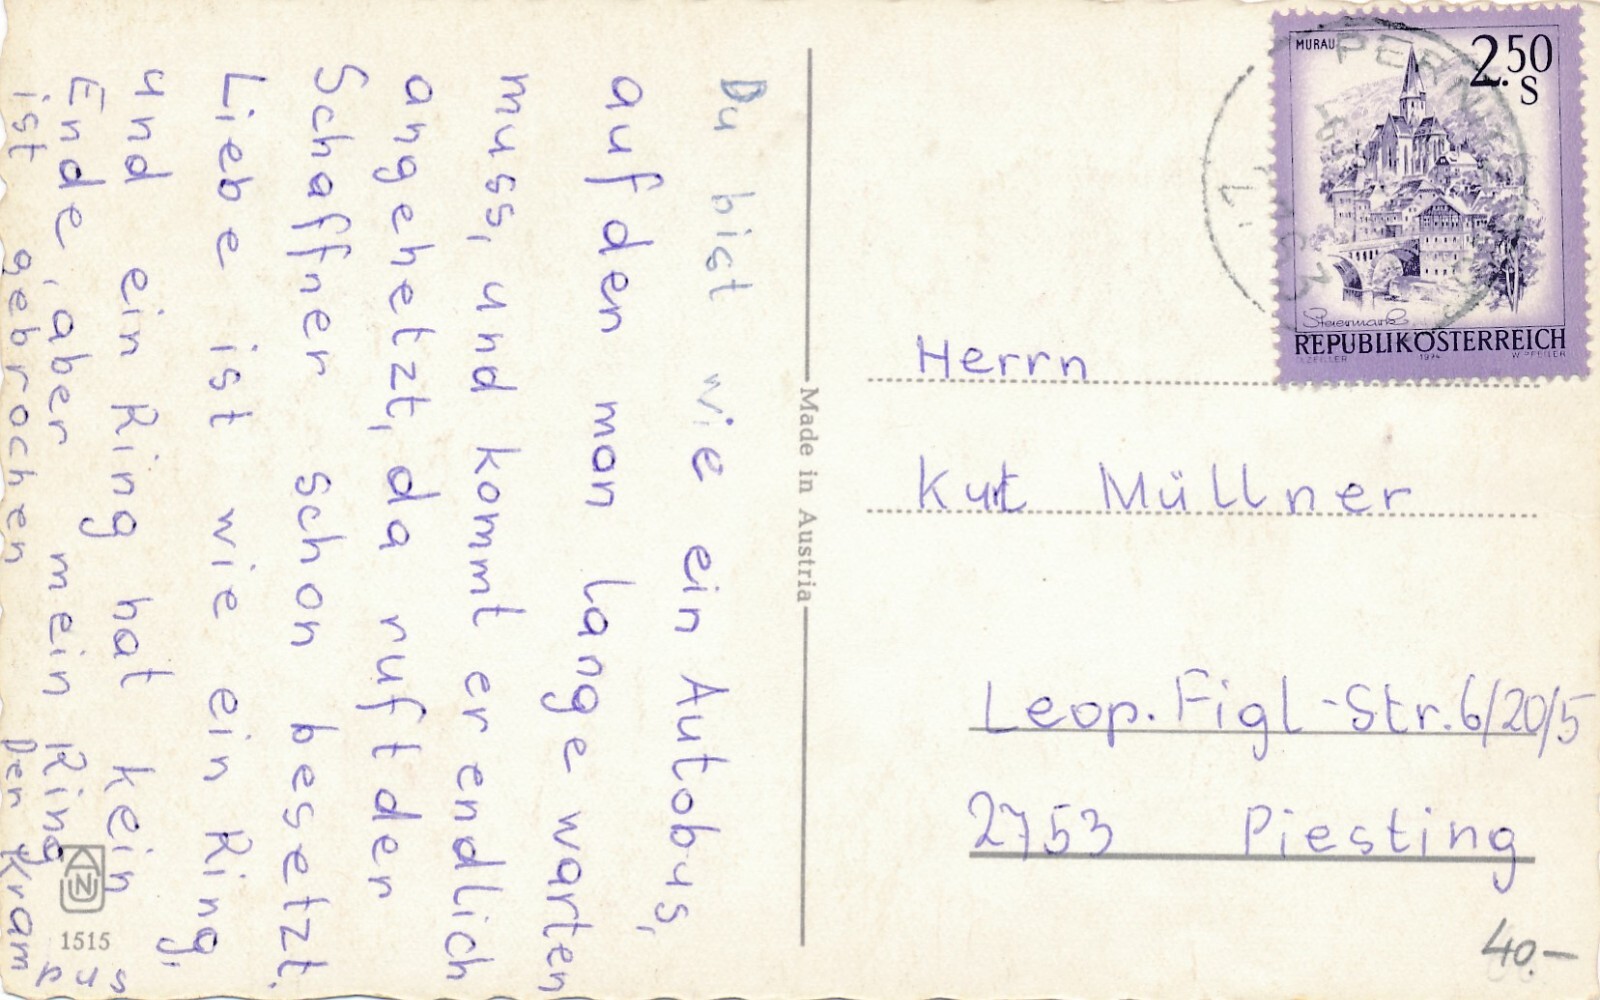 Du bist wie ein Autobus,
auf den man lange warten
muss, und kommt er endlich
angehetzt, da ruft der
Schaffner schon besetzt.
Liebe ist wie ein Ring,
und ein Ring hat kein
Ende, aber mein Ring
ist gebrochen
Der Kram
pus
1515
Made in Austria
MURAU
2.50
S
Steiermark
REPUBLIK ÖSTERREICH
1974
W. PFEILER
Herrn
Kurt Müllner
Leop. Figl-Str. 6/20/5
2753 Piesting
40.-